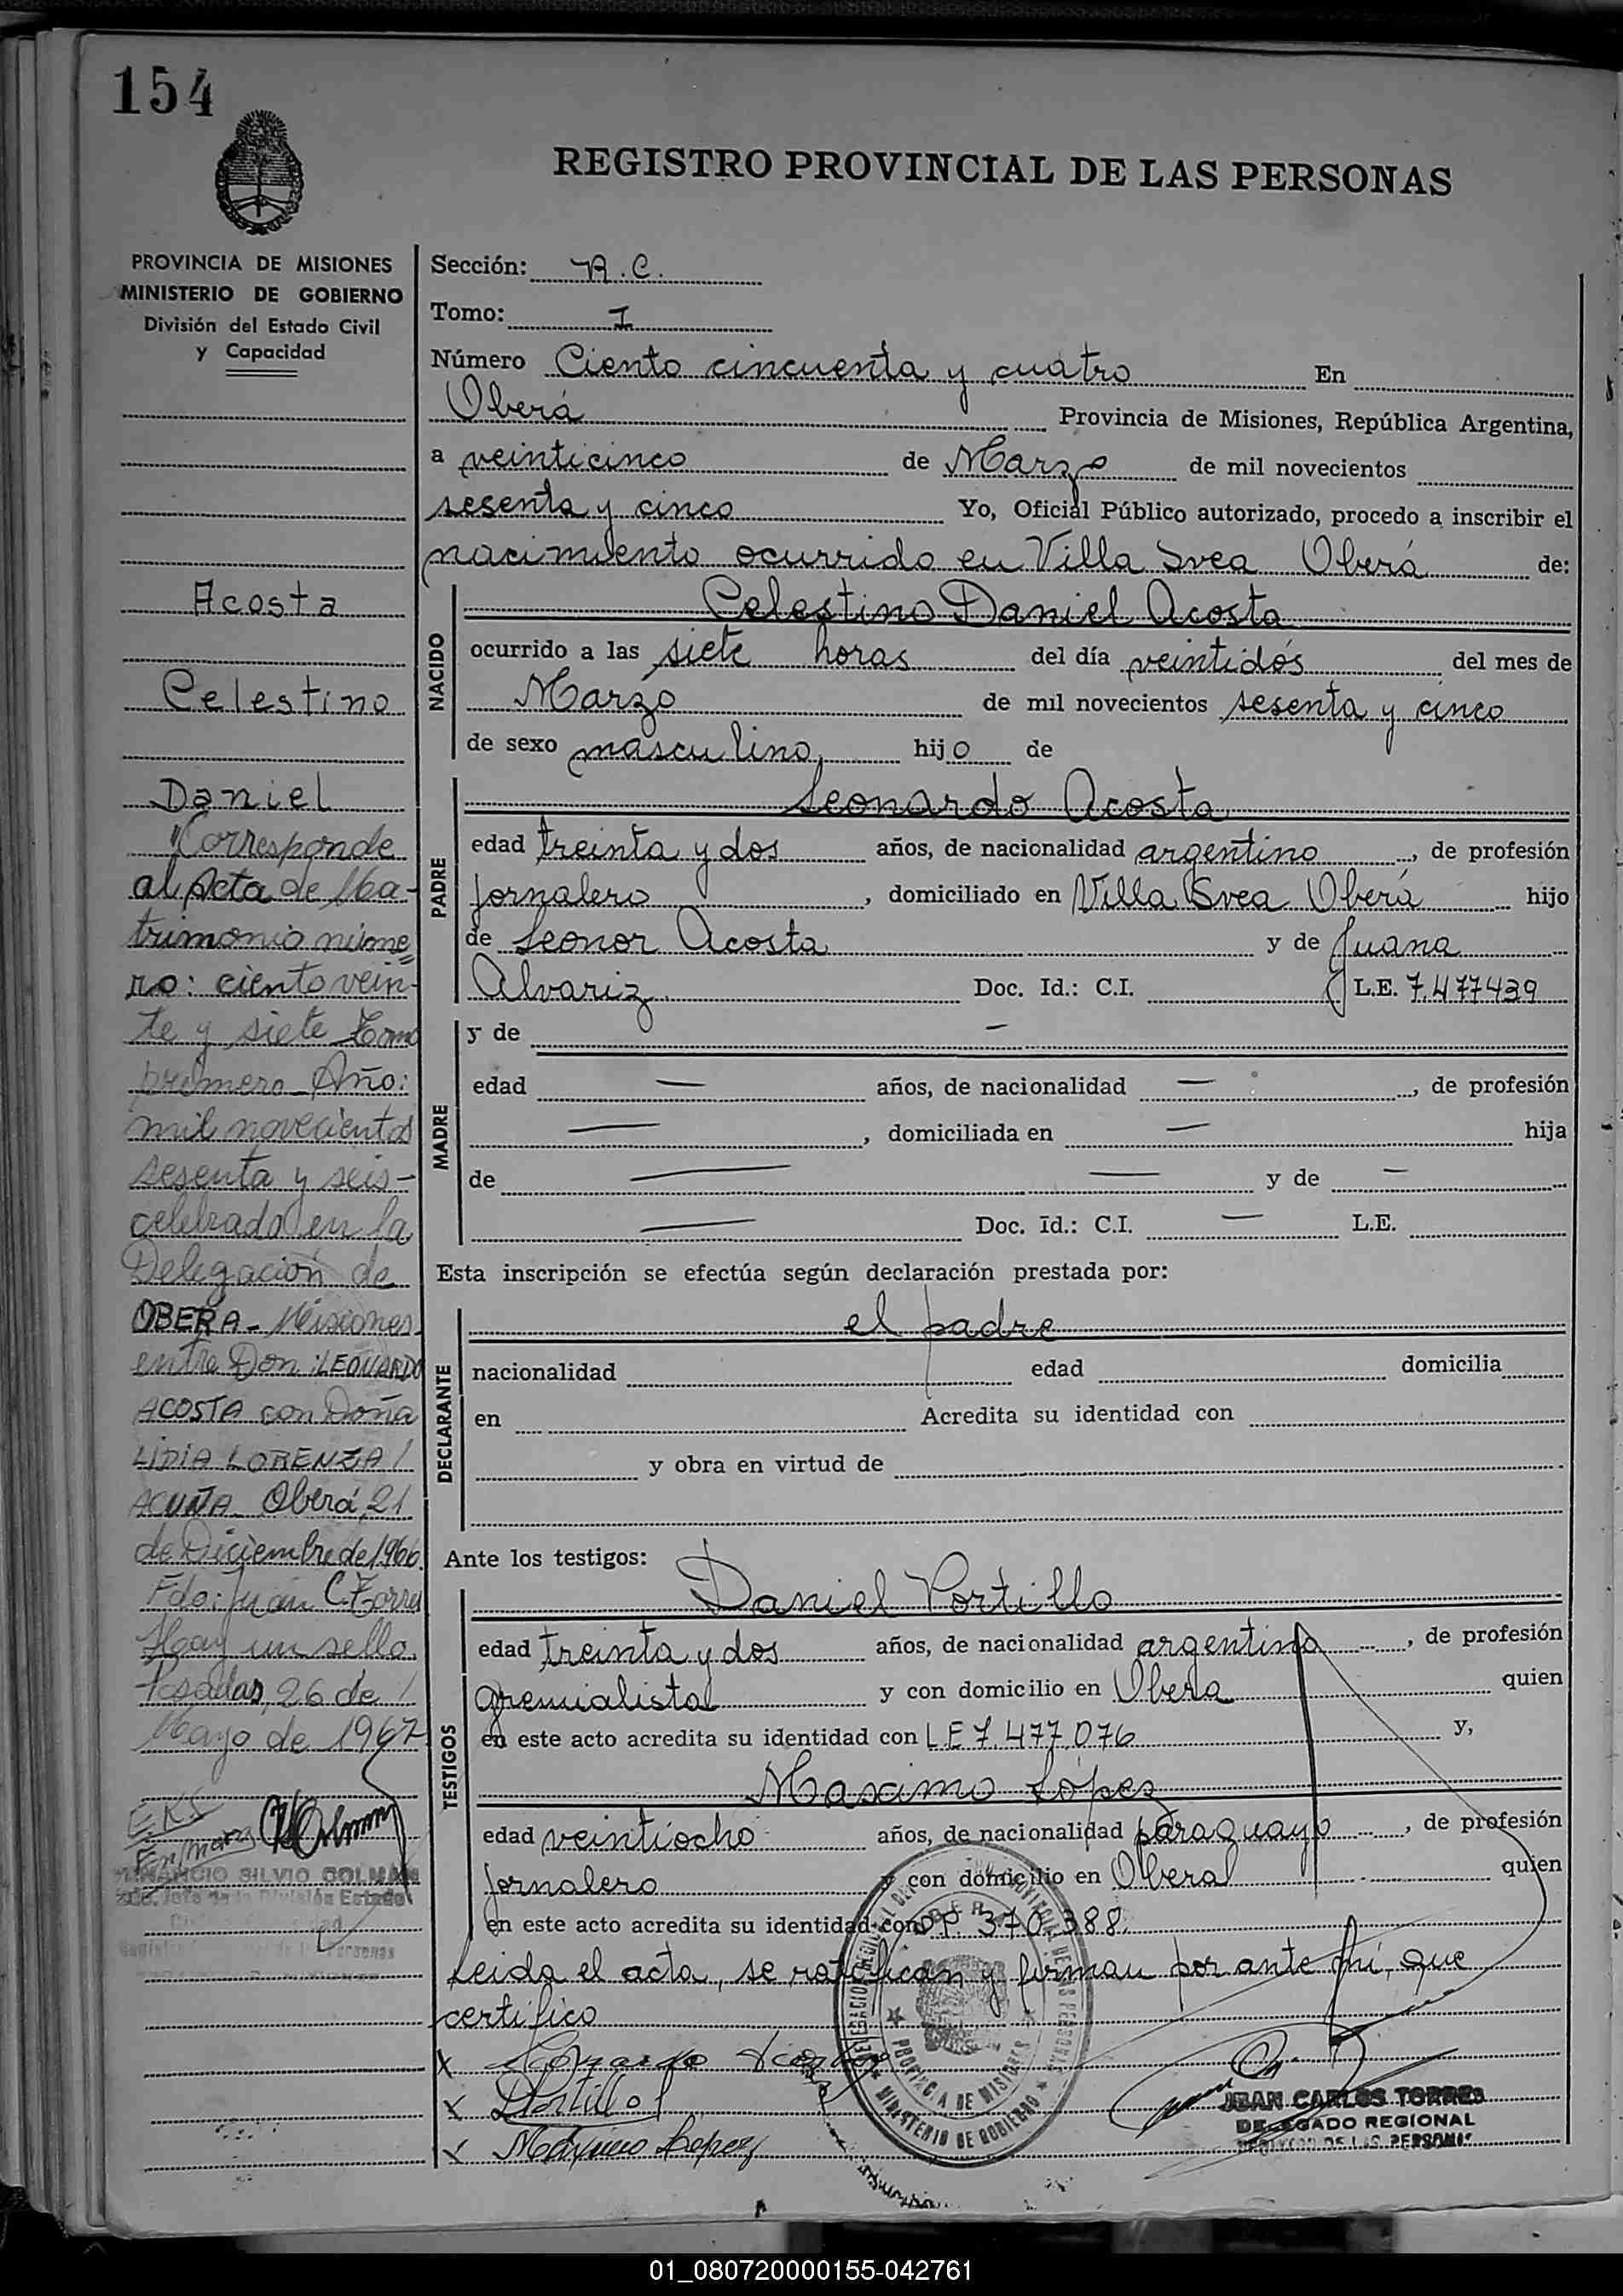 154
REGISTRO PROVINCIAL DE LAS PERSONAS
PROVINCIA DE MISIONES
MINISTERIO DE GOBIERNO
División del Estado Civil
y Capacidad
Acosta
Celestino
Daniel
"Corresponde
al Acta de Ma-
trimonio núme
ro: ciento vein-
te y siete Tomo
primero Año:
mil novecientos
sesenta y seis-
celebrado en la
Delegación de
OBERA - Misiones
entre Don LEONARDO
ACOSTA con Doña
LIDIA LORENZA /
ACUÑA Oberá, 21
de Diciembre de 1966.
Fdo: Juan C. Torres
Hay un sello.
Posadas, 26 de /
Mayo de 1967
SILVIO COLMAN
Sub. Jefe de la División Estado
Sección: N.C.
Tomo: I
Número Ciento cincuenta y cuatro En
Oberá Provincia de Misiones, República Argentina,
a veinticinco de Marzo de mil novecientos
sesenta y cinco Yo, Oficial Público autorizado, procedo a inscribir el
nacimiento ocurrido en Villa Svea Oberá de:
NACIDO
Celestino Daniel Acosta
ocurrido a las siete horas del día veintidós del mes de
Marzo de mil novecientos sesenta y cinco
de sexo masculino, hijo de
PADRE
Leonardo Acosta
edad treinta y dos años, de nacionalidad argentino, de profesión
jornalero, domiciliado en Villa Svea Oberá hijo
de Leonor Acosta y de Juana
Alvariz Doc. Id.: C.I. L.E. 7.477439
MADRE
y de —
edad — años, de nacionalidad — , de profesión
— , domiciliada en — hija
de — — y de —
— Doc. Id.: C.I. — L.E.
Esta inscripción se efectúa según declaración prestada por:
DECLARANTE
el padre
nacionalidad edad domicilia
en Acredita su identidad con
y obra en virtud de
Ante los testigos:
TESTIGOS
Daniel Portillo
edad treinta y dos años, de nacionalidad argentino, de profesión
gremialista y con domicilio en Oberá quien
en este acto acredita su identidad con LE 7.477.076 y,
Maximo Lópes
edad veintiocho años, de nacionalidad paraguayo, de profesión
jornalero y con domicilio en Oberá quien
en este acto acredita su identidad con D.P. 370.388.
Leida el acta, se ratifican y firman por ante mi, que
certifico
x Leonardo Acosta
x DPortillo
x Máximo Lopez
PROVINCIA DE MISIONES
MINISTERIO DE GOBIERNO
JUAN CARLOS TORRES
DELEGADO REGIONAL
REGISTRO DE LAS PERSONAS
01_080720000155-042761